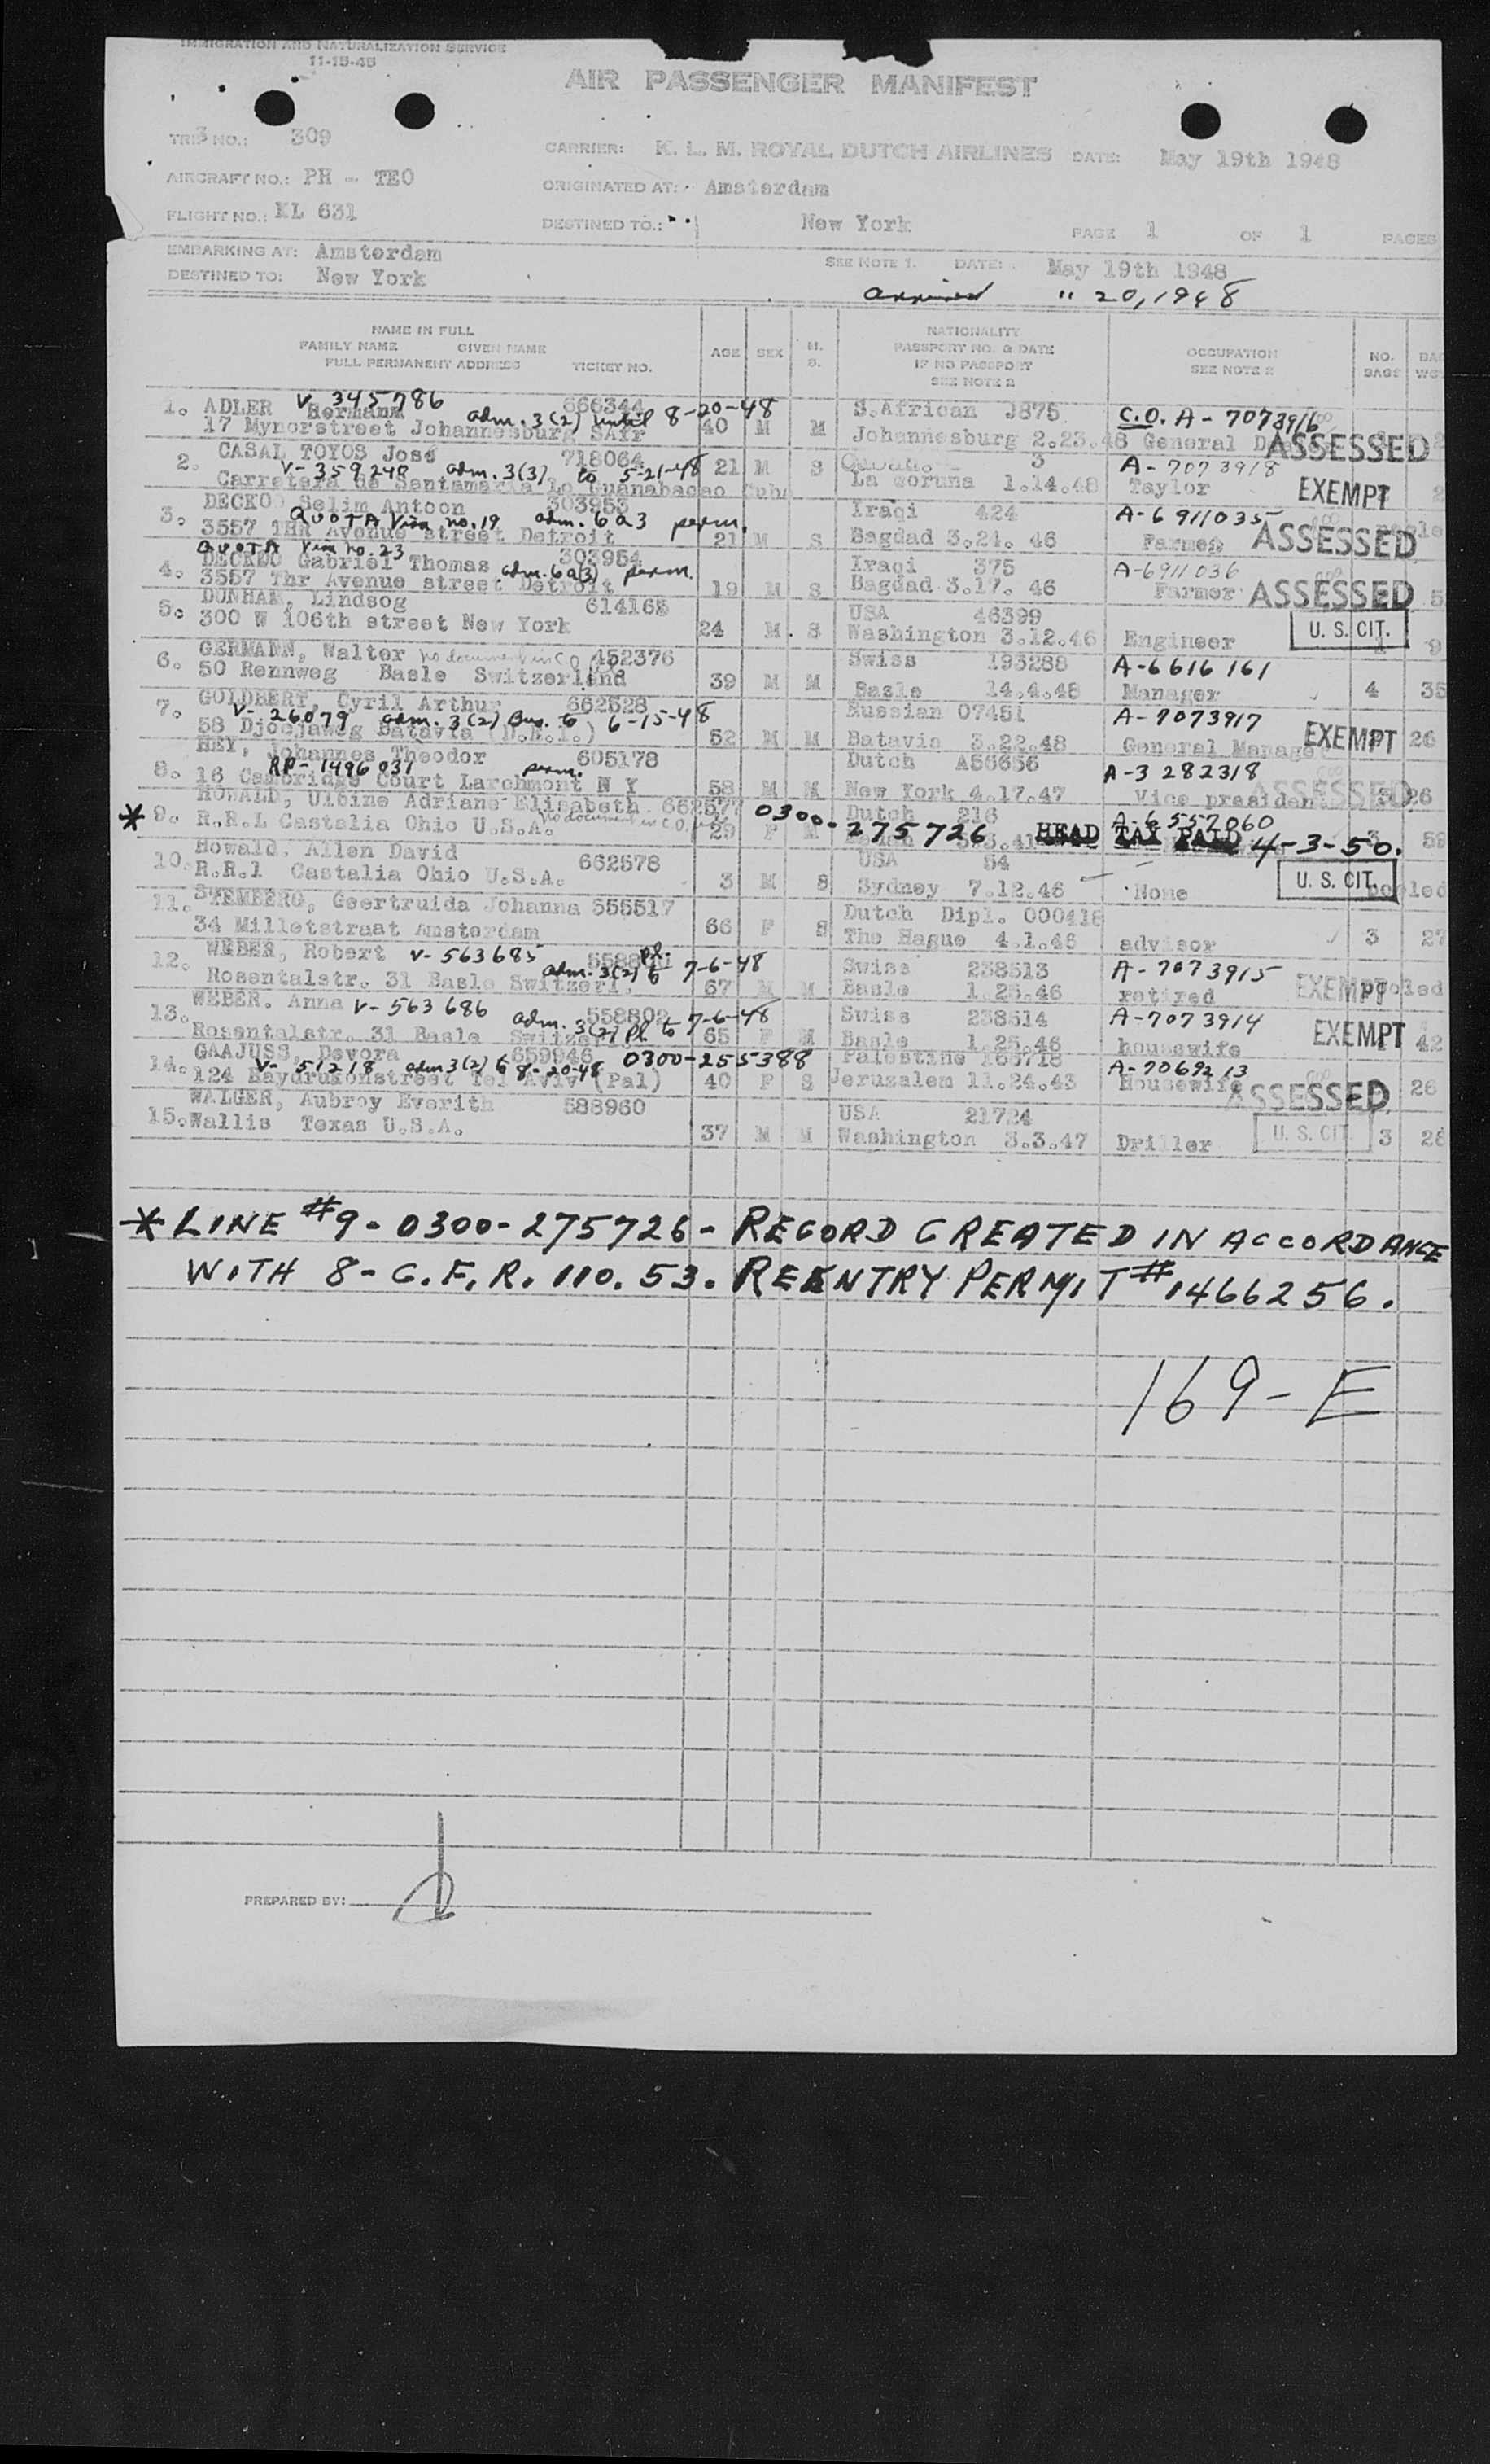 IMMIGRATION AND NATURALIZATION SERVICE
11-15-45
AIR PASSENGER MANIFEST
TRIP NO.: 309
CARRIER: K. L. M. ROYAL DUTCH AIRLINES DATE: May 19th 1948
AIRCRAFT NO.: PH - TEO ORIGINATED AT: Amsterdam
FLIGHT NO.: KL 631 DESTINED TO.: New York PAGE 1 OF 1 PAGES
EMBARKING AT: Amsterdam SEE NOTE 1. DATE: May 19th 1948
DESTINED TO: New York
arrived " 20, 1948
NAME IN FULL
FAMILY NAME GIVEN NAME
FULL PERMANENT ADDRESS TICKET NO.
AGE SEX M. S.
NATIONALITY
PASSPORT NO. & DATE
IF NO PASSPORT
SEE NOTE 2
OCCUPATION
SEE NOTE 2
NO. BAGS
V- 345786
1. ADLER Hermann 666344 S.African J875 C.O. A-7073916
adm. 3(2) until 8-20-48
17 Mynorstreet Johannesburg SAfr 40 M M Johannesburg 2.23.48 General ASSESSED
2. CASAL TOYOS José 718064 21 M S 3 A-7073918
V-359240 adm. 3(3) to 5-21-48
Carretera de Santamaria Lo Guanabacao Cuba La Coruna 1.14.48 Taylor EXEMPT
3. DECKO Selim Antoon 303953 Iraqi 424 A-6911035
QUOTA Visa no. 19 adm. 6a3 perm.
3557 THR Avenue street Detroit 21 M S Bagdad 3.21. 46 Farmer ASSESSED
QUOTA Visa no. 23
4. DECKO Gabriel Thomas 303954 Iraqi 375 A-6911036
adm. 6a(3) perm.
3557 Thr Avenue street Detroit 19 M S Bagdad 3.17. 46 Farmer ASSESSED 5
5. DUNHAM, Lindsog 614165 USA 46399
300 W 106th street New York 24 M. S Washington 3.12.46 Engineer U. S. CIT. 1 9
6. GERMANN, Walter no document in C.O. 452376 Swiss 193288 A-6616161
50 Rennweg Basle Switzerland 39 M M Basle 14.4.48 Manager 4 35
7. GOLDBERT, Cyril Arthur 662528 Russian 07451 A-7073917
V-26079 adm. 3(2) Bus. to 6-15-48
58 Djocjaweg Batavia (N.E.I.) 52 M M Batavia 3.22.48 General Manage EXEMPT 26
8. HEY, Johannes Theodor 605178 Dutch A56656 A-3282318
RP-1496031 perm.
16 Cambridge Court Larchmont N Y 58 M M New York 4.17.47 Vice president ASSESSED 26
* 9. HOWALD, Ulbine Adriane Elisabeth 662577 Dutch 216 A-6557060
0300-275726 HEAD TAX PAID 4-3-50.
R.R.1 Castalia Ohio U.S.A. no document in C.O. 29 F M 3 59
10. Howald, Allen David 662578 USA 54
R.R.1 Castalia Ohio U.S.A. 3 M S Sydney 7.12.46 None U. S. CIT. pooled
11. STEMBERG, Geertruida Johanna 555517 Dutch Dipl. 000418
34 Milletstraat Amsterdam 66 F S The Hague 4.1.46 advisor 3 27
12. WEBER, Robert V-563685 Swiss 238513 A-7073915
pl. adm. 3(2) to 7-6-48
Rosentalstr. 31 Basle Switzerl. 67 M M Basle 1.25.46 retired EXEMPT pooled
13. WEBER. Anna V-563686 558802 Swiss 238514 A-7073914
adm. 3(2) pl to 7-6-48
Rosentalstr. 31 Basle Switzerl 65 F M Basle 1.25.46 housewife EXEMPT 42
14. GAAJUSS, Devora 659946 0300-255388 Palestine 166718 A-7069213
V-51218 adm 3(2) to 8-20-48
124 Haydrukonstreet Tel Aviv (Pal) 40 F S Jeruzalem 11.24.43 Housewife ASSESSED 26
15. WALGER, Aubrey Everith 588960 USA 21724
Wallis Texas U.S.A. 37 M M Washington 3.3.47 Driller U. S. CIT. 3 28
* LINE #9 - 0300-275726 - RECORD CREATED IN ACCORDANCE
WITH 8-C.F.R. 110.53. REENTRY PERMIT #1466256.
169-E
PREPARED BY: